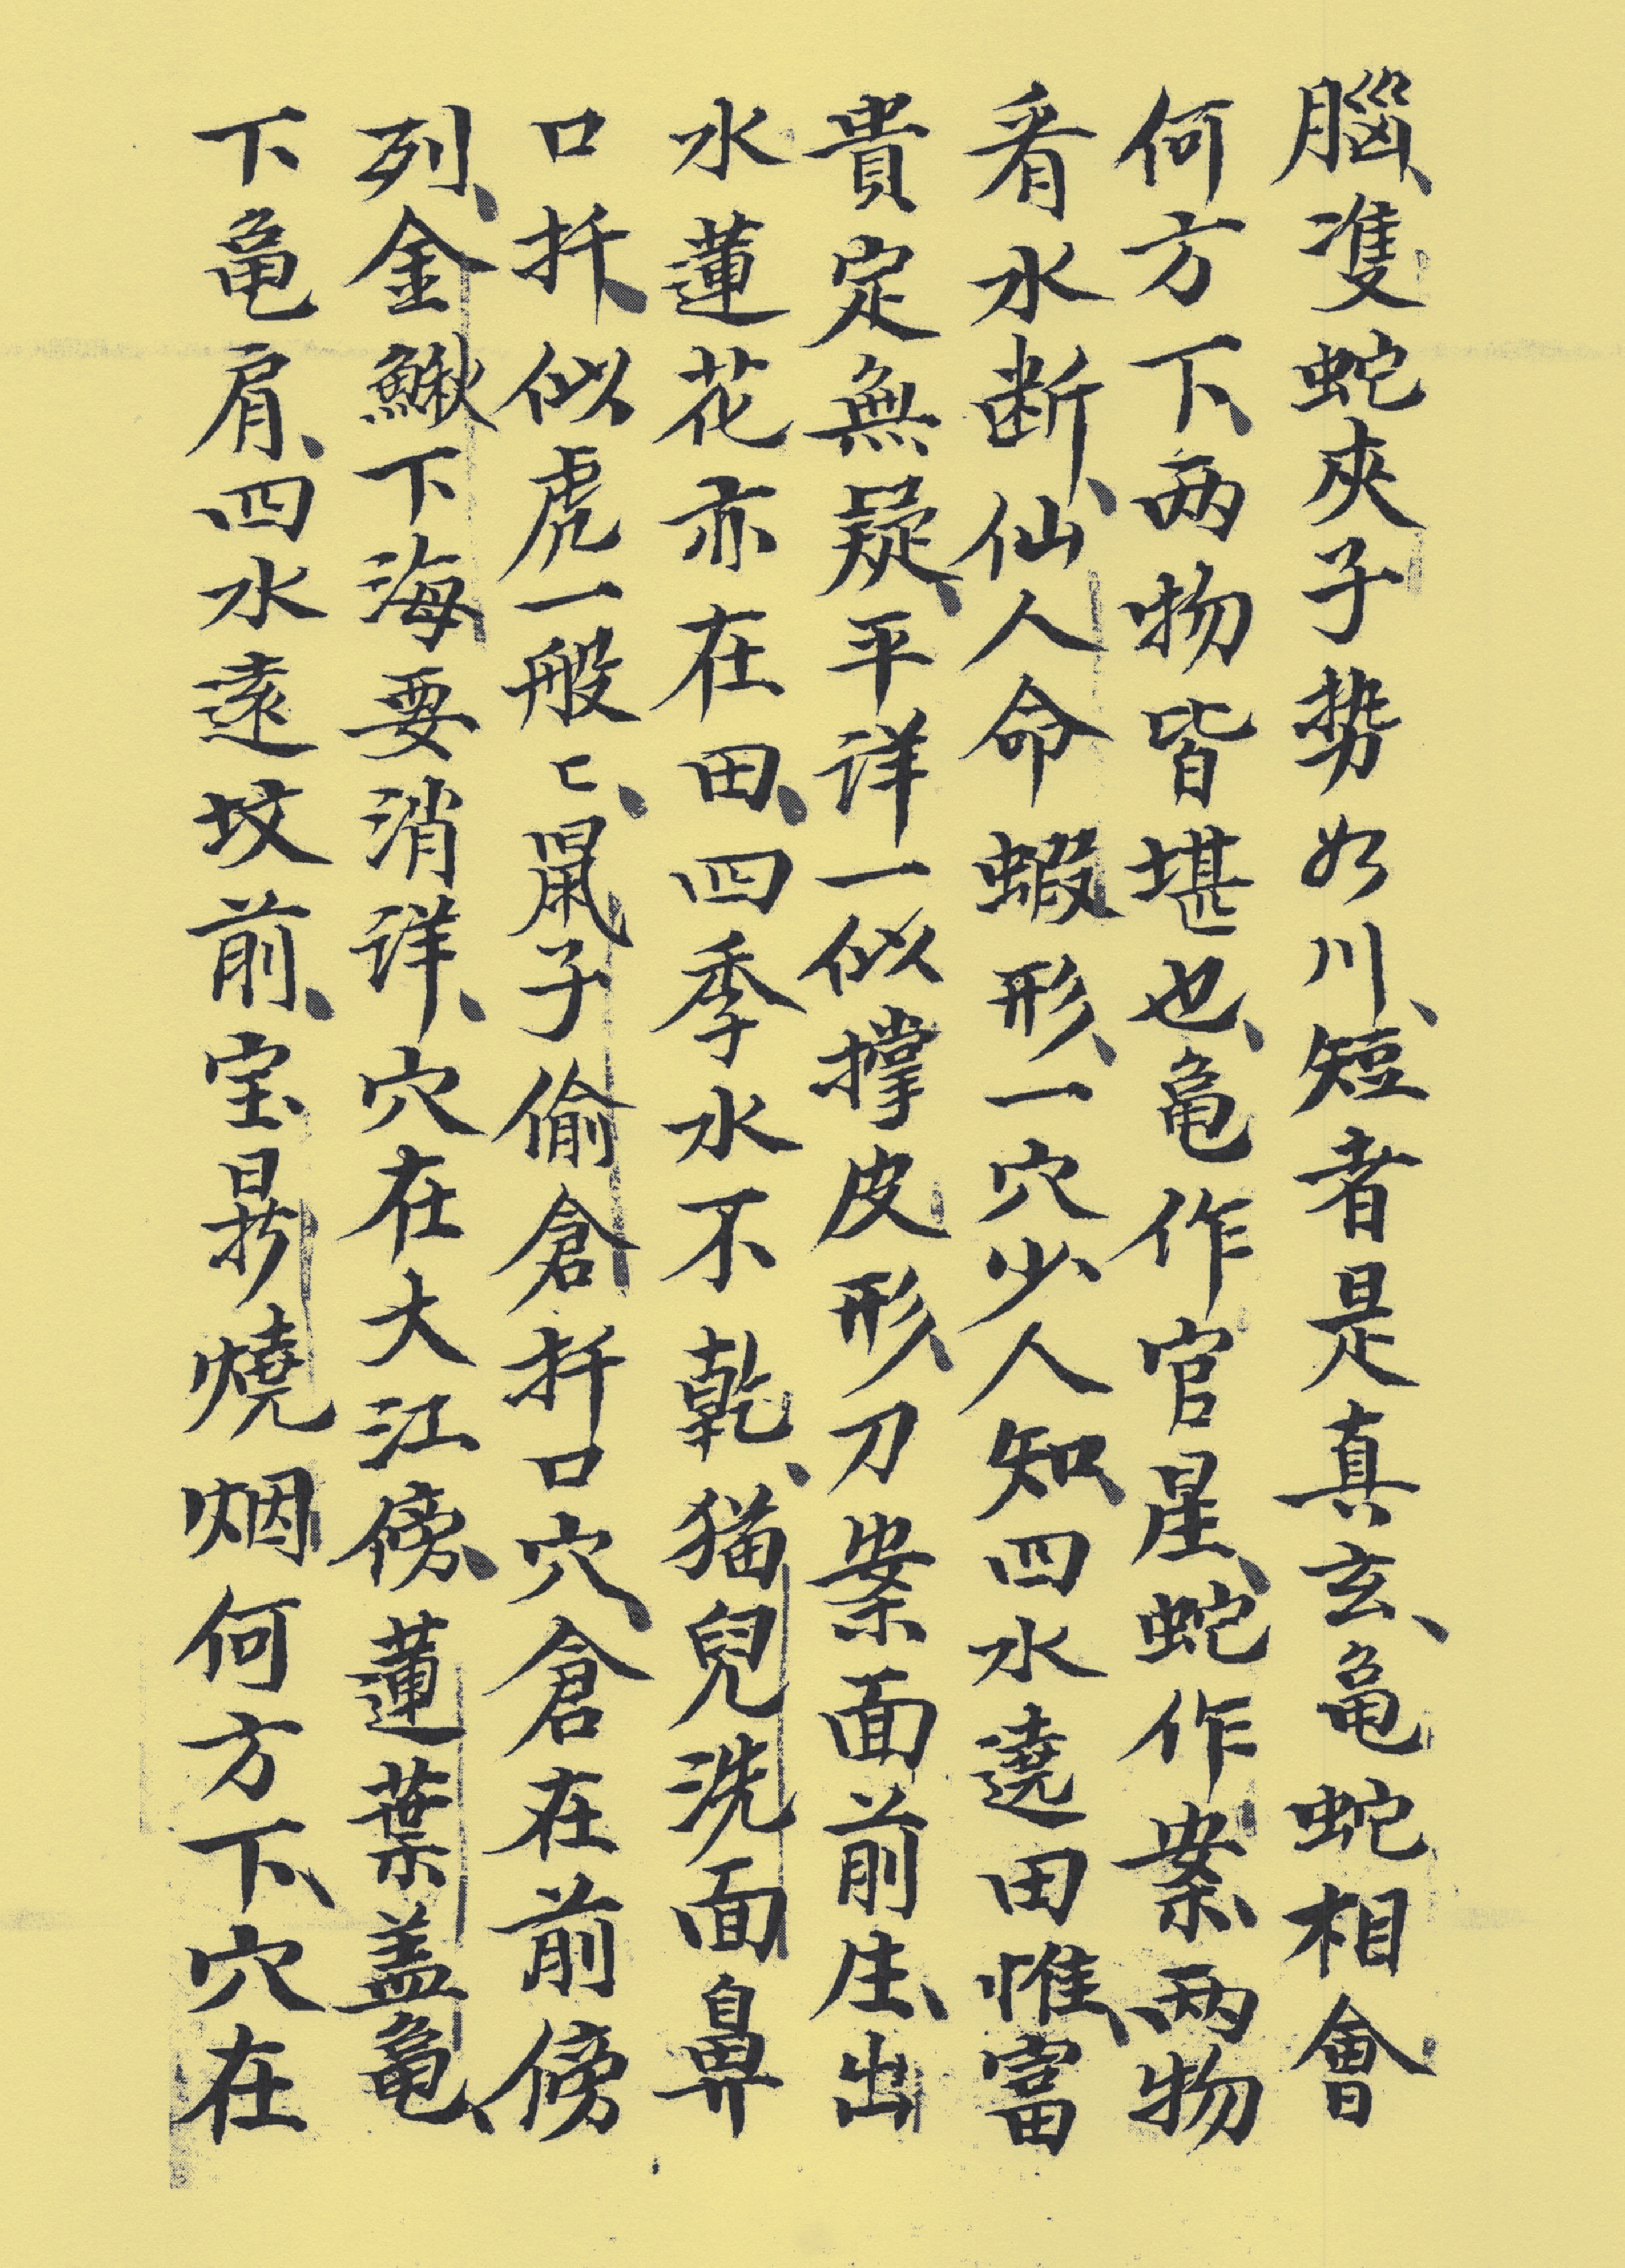 腦、凖蛇夾子势如川、短者是真玄、龟蛇相會
何方下、两物皆堪也、龟作官星、蛇作案、两物
看水断、仙人命蝦形、一穴少人知、四水遶田惟、富
貴定無疑、平详一似撑皮形、刀案面前生、出
水蓮花亦在田、四季水不乾、猫兒洗面鼻
口扦、似虎一般〻、鼠子偷倉扦口穴、倉在前傍
列、金鰍下海要消详、穴在大江傍、蓮葉盖龟、
下龟肩、四水遠坟前、宝晷燒烟何方下、穴在